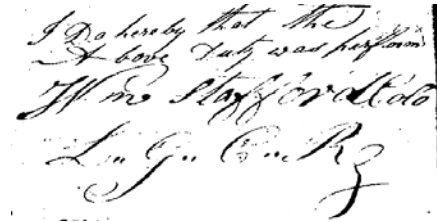 I Do hereby that the
Above Duty was perform
Wm Stafford
L.. G.. C.. R